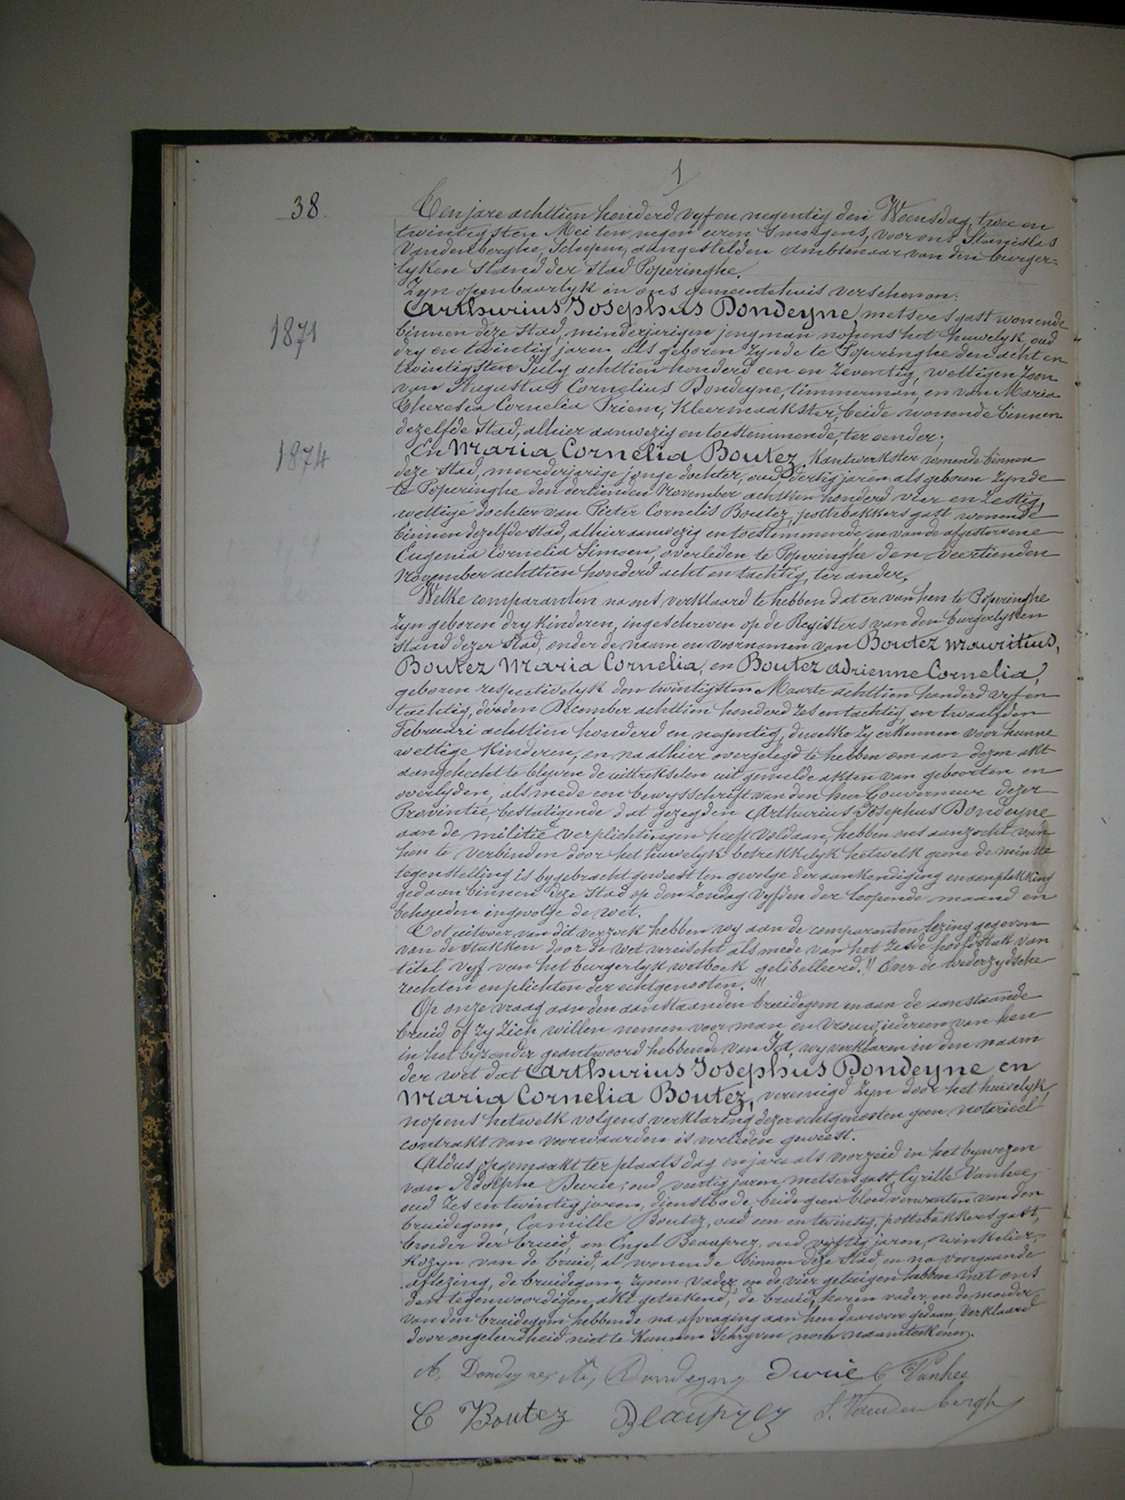 1
38.
Ten jare achttien honderd vyf en negentig den Woensdag, twee en
twintigsten Mei ten negen uren s'morgens, voor ons Stanislas
Vandenberghe, Schepen, aangestelden ambtenaar van den burger=
lyken stand der Stad Poperinghe.
Zyn openbaarlyk in ons gemeentehuis verschenen:
Arthurius Josephus Dondeyne, metsersgast wonende
1871
binnen deze Stad, minderjarigen jongman nopens het huwelyk, oud
dry en twintig jaren, als geboren zynde te Poperinghe den acht en
twintigsten July achttien honderd een en zeventig, wettigen Zoon
van Augustus Cornelius Dondeyne, timmerman, en van Maria
Theresia Cornelia Priem, Kleermaakster, beide wonende binnen
dezelfde Stad, alhier aanwezig en toestemmende, ter eender;
1874
En Maria Cornelia Boutez, Kantwerkster wonende binnen
deze Stad, meerderjarige jonge dochter, oud dertig jaren als geboren zynde
te Poperinghe den dertienden November achttien honderd vier en zestig,
wettige dochter van Pieter Cornelis Boutez, pottebakkersgast wonende
binnen dezelfde Stad, alhier aanwezig en toestemmende, en van de afgestorvene
Eugenia Cornelia Simoen, overleden te Poperinghe den veertienden
November achttien honderd acht en tachtig, ter ander.
Welke comparanten na ons verklaard te hebben dat er van hen te Poperinghe
zyn geboren dry kinderen, ingeschreven op de Registers van den burgerlyken
stand dezer Stad, onder de naam en voornamen van Boutez Mauritius,
Boutez Maria Cornelia, en Boutez Adrienne Cornelia,
geboren respectivelyk den twintigsten Maarte achttien honderd vyf en
tachtig, derden December achttien honderd zes en tachtig, en twaalfden
Februari achttien honderd en negentig, dewelke zy erkennen voor hunne
wettige Kinderen, en na alhier overgelegd te hebben om aan dezen akt
aangehecht te blyven de uittrekselen uit gemelde akten van geboorten en
overlyden, als mede een bewysschrift van den heer Gouverneur dezer
Provintie, bestatigende dat gezegden Arthurius Josephus Dondeyne
aan de militie verplichtingen heeft voldaan, hebben ons aanzocht van
hen te verbinden door het huwelyk betrekkelyk hetwelk geene de minste
tegenstelling is bygebracht geweest ten gevolge der aankondiging en aanplakking
gedaan binnen deze Stad op den Zondag vyfden der loopende maand en
behoeden ingevolge de wet.
Tot uitvoer van dit verzoek hebben wy aan de comparanten lezing gegeven
van de stukken door de wet vereischt als mede van het zesde hoofdstuk van
titel vyf van het burgerlyk wetboek gelibelleerd. " Over de wederzydsche
rechten en plichten der echtgenoten. "
Op onze vraag aan den aanstaanden bruidegom en aan de aanstaande
bruid of zy zich willen nemen voor man en vrouw, iedereen van hen
in het byzonder geantwoord hebbende van Ja, wy verklaren in den naam
der wet dat Arthurius Josephus Dondeyne en
Maria Cornelia Boutez, vereenigd zyn door het huwelyk,
nopens hetwelk volgens verklaring dezer echtgenooten geen notarieel
contrakt van voorwaarden is verleden geweest.
Aldus opgemaakt ter plaats dag en jare als voorzeid in het bywezen
van Adolphe Devrie, oud veertig jaren, metsersgast, Cyrille Vanhee,
oud zes en twintig jaren, dienstbode, beide geen bloedverwanten van den
bruidegom, Camille Boutez, oud een en twintig, pottebakkersgast,
broeder der bruid, en Engel Beauprez, oud vyftig jaren, winkelier,
Kozyn van de bruid, al wonende binnen deze Stad, en na voorgaande
aflezing, de bruidegom, zynen vader en de vier getuigen hebben met ons
den tegenwoordigen akt geteekend, de bruid, haren vader en de moeder
van den bruidegom hebbende na afvraging aan hen daarover gedaan, verklaard
door ongeleerdheid niet te kunnen schryven noch naamteekenen.
A, Dondeyne A, Dondeyne Devrie C Vanhee
C Boutez Beauprez S. Vandenberghe